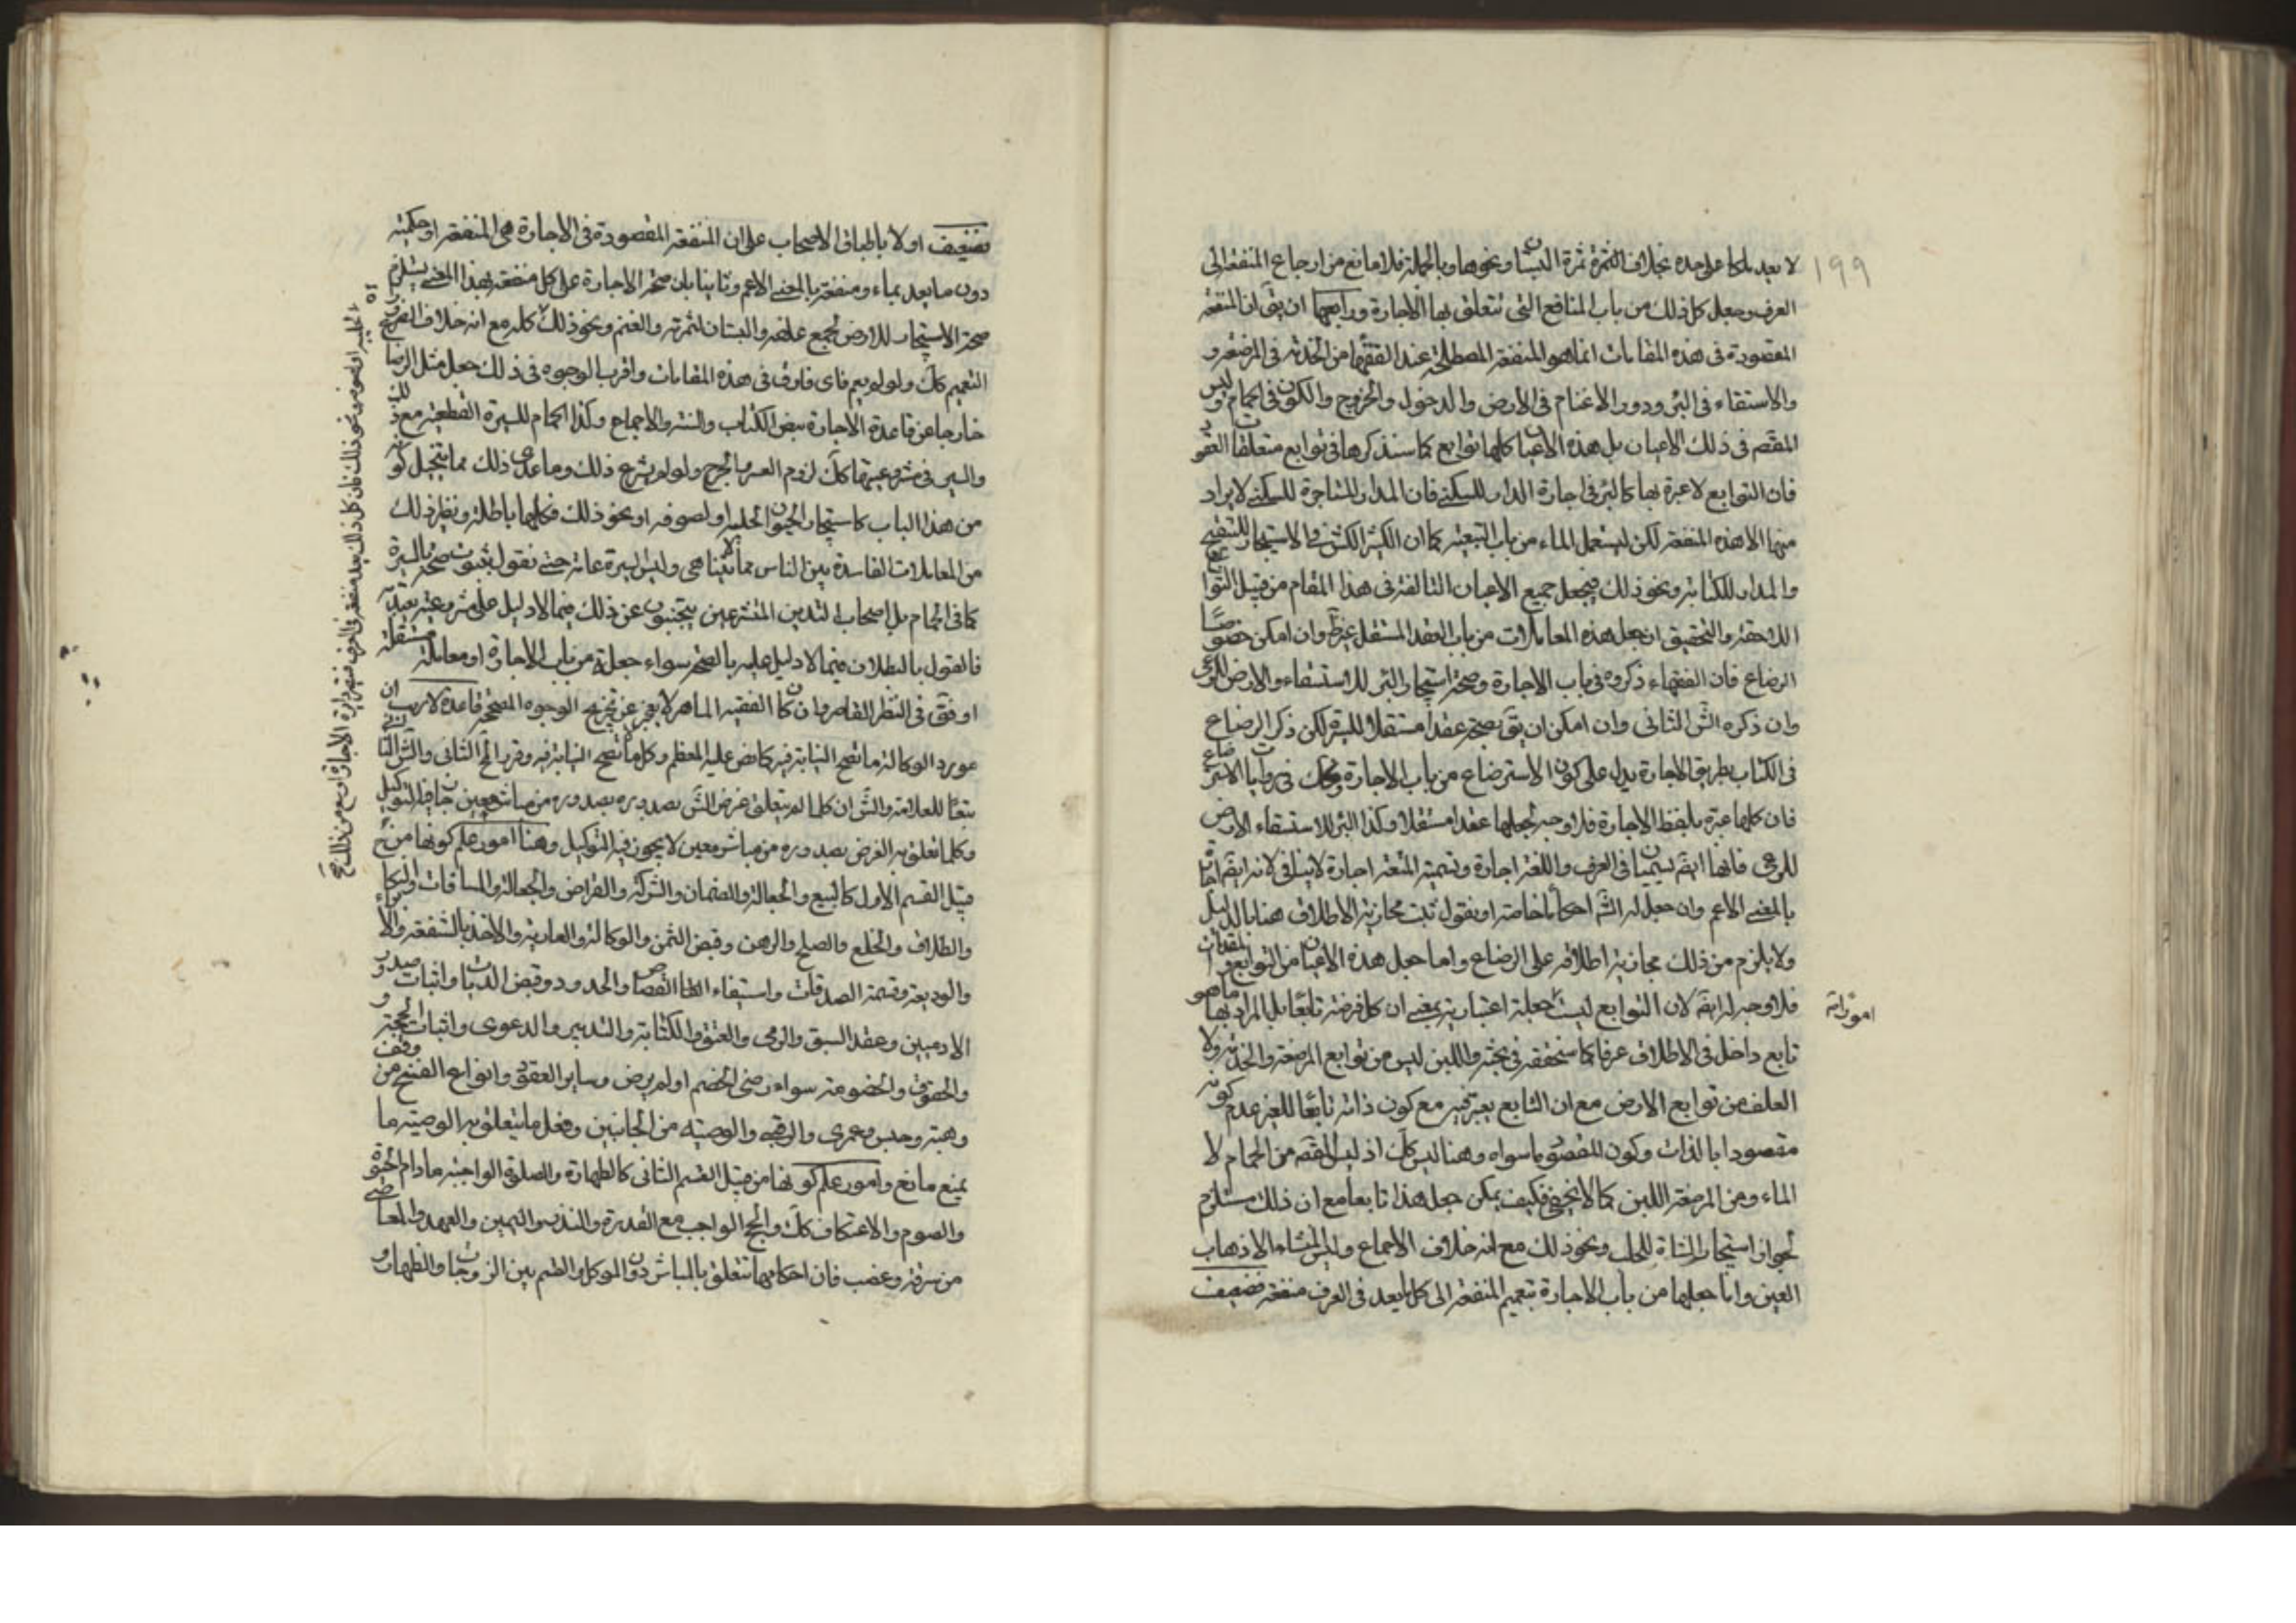 ١٩٩
لا يعد ملكا على حده بخلاف الثمرة ثمرة البستان ونحوها وبالجملة فلا مانع من ارجاع المنفعة الى
العرف وجعل كل ذلك من باب المنافع التي تتعلق بها الاجارة ورابعها ان يقٓ ان المنفعة
المقصودة فى هذه المقامات انما هو المنفعة المصطلحة عند الفقهاء من الخدمة فى المرضعة و
والاستقاء فى البئر ودور الاغنام فى الارض والدخول والخروج والكون فى الحمام وليس
المقصٓ فى ذلك الاعيان بل هذه الاعيان كلها توابع كما سنذكرها فى توابع متعلقات العقود
فان التوابع لا عبرة بها كالبئر فى اجارة الدار للسكنى فان الدار المستاجرة للسكنى لا يراد
منها الا هذه المنفعة لكن ليستعمل الماء من باب التبعية كما ان الكش للاستيجار للتلقيح
والمداد للكتابة ونحو ذلك فيجعل جميع الاعيان التالفة فى هذا المقام من قبيل التوابع
اللاحقة والتحقيق ان جعل هذه المعاملات من باب العقد المستقل غير ظٓ وان امكن خصوصًا
الرضاع فان الفقهاء ذكروه فى باب الاجارة وصحة استيجار البئر للاستسقاء والارض للرعى
وان ذكره الشٓ الثانى وان امكن ان يقٓ بصحة عقدا مستقلا للسيرة لكن ذكر الرضاع
فى الكتاب بطريق الاجارة يدل على كون الاسترضاع من باب الاجارة وكذلك فى روايات الاسترضاع
فان كلها عبرة بلفظ الاجارة فلا وجه لجعلها عقدا مستقلا وكذا البئر للاستسقاء الارض
للرعى فانها ايضٓ يسميان فى العرف واللغة اجارة وتسمية المتعة اجارة لا ينافى لانه ايضٓ اجارة
بالمعنى الاعم وان جعل له الشٓ احكاما خاصة او نقول ثبت مجازية الاطلاق هنا بالدليل
ولا يلزم من ذلك مجازية اطلاقه على الرضاع واما جعل هذه الاعيان من التوابع
فلا وجه له ايضٓ لان التوابع ليست جعلية اعتبارية بمعنى ان كل فرضته تابعًا بل المراد بها ما هو
تابع داخل فى الاطلاق عرفا كما سنحققه فى بحثه واللبن ليس من توابع المرضعة والخدمة ولا
العلف من توابع الارض مع ان التابع يعتبر فيه مع كون ذاته تابعًا للغير عدم كونه
مقصودا بالذات وكون المقصود ما سواه وهنا ليس كلٓ اذ ليس المقصٓ من الحمام الا
الماء ومن المرضعة اللبن كما لا يخفى فكيف يمكن جعل هذا تابعا مع ان ذلك مستلزم
لجواز استيجار الشاة للحلب ونحو ذلك مع انه خلاف الاجماع وليس المنشاء الا ذهاب
العين واما جعلها من باب الاجارة بتعميم المنفعة الى كل ما يعد فى العرف منفعة فضعيف
فضعيف اولا باطباق الاصحاب على ان المنفعة المقصودة فى الاجارة هى المنفعة او حكمية
دون ما يعد بماء ومنفعة بالمعنى الاعم وثانيا بان صحة الاجارة على كل منفعة بهذا المعنى يستلزم
صحة الاستيجار للارض لجمع علفه والبستان لثمرته والغنم ونحو ذلك كله مع انه خلاف
التعميم كلٓ ولو لم يعم فاى فارق فى هذه المقامات واقرب الوجوه فى ذلك جعل مثل الرضاع
خارجا عن قاعدة الاجارة بنص الكتاب والسنة والاجماع وكذا الحمام للسيرة القطعية مع
والسير فى مشروعيتها كلٓ لزوم العسر والحرج ولو لم يشرع ذلك وما عدى ذلك مما يتخيل كونه
من هذا الباب كاستيجار الحيوان لحلبه او لصوفه او نحو ذلك فكلها باطلة ونظير ذلك
من المعاملات الفاسدة بين الناس مما لا يتناهى وليس السيرة عامة حتى نقول بثبوت صحة بالسيرة
كما فى الحمام بل اصحاب التدين المتشرعين يجتنبون عن ذلك فيما لا دليل على مشروعيته
فالقول بالبطلان فيما لا دليل عليه بالصحة سواء جعله من باب الاجارة او معاملة مستقلة
اوفق فى النظر القاصر وان كان الفقيه الماهر لا يعجز عن تخريج الوجوه المصححة قاعدة لا ريب ان
مورد الوكالة ما تصح النيابة فيه كما نص عليه المعظم وكل ما لا تصح النيابة فيه وقرر المحٓ الثانى والشٓ الثانى
تبعًا للعلامة والشٓ ان كلما لم يتعلق غرض الشٓ بصدوره من مباشر معين جاز فيه التوكيل
وكلما تعلق به الغرض بصدوره من مباشر معين لا يجوز فيه التوكيل وهنا امور علم كونها من
قبيل القسم الاول كالبيع والحوالة والضمان والشركة والقراض والجعالة والمساقات والنكاح
والطلاق والخلع والصلح والرهن وقبض الثمن والوكالة والعارية والاخذ بالشفعة والابراء
والوديعة وقسمة الصدقات واستيفاء القصاص والحدود وقبض الديات واثبات حدود
الادميين وعقد السبق والرمى والعتق والكتابة والتدبير والدعوى واثبات الحجة و
والحقوق والخصومة سواء رضى الخصم او لم يرض وساير العقود وانواع الفسخ من وقف
وهبة وحبس وعمرى والرقبى والوصية من الجانبين وفعل ما يتعلق به الوصية ما
يمنع مانع وامور علم كونها من قبيل القسم الثانى كالطهارة والصلوة الواجبة مادام الحيوة
والصوم والاعتكاف كلٓ والحج الواجب مع القدرة والنذر واليمين والعهد والمعاصى
من سرقة وغصب فان احكامها تتعلق بالمباشر دون الموكل والقسم بين الزوجات والظهار و